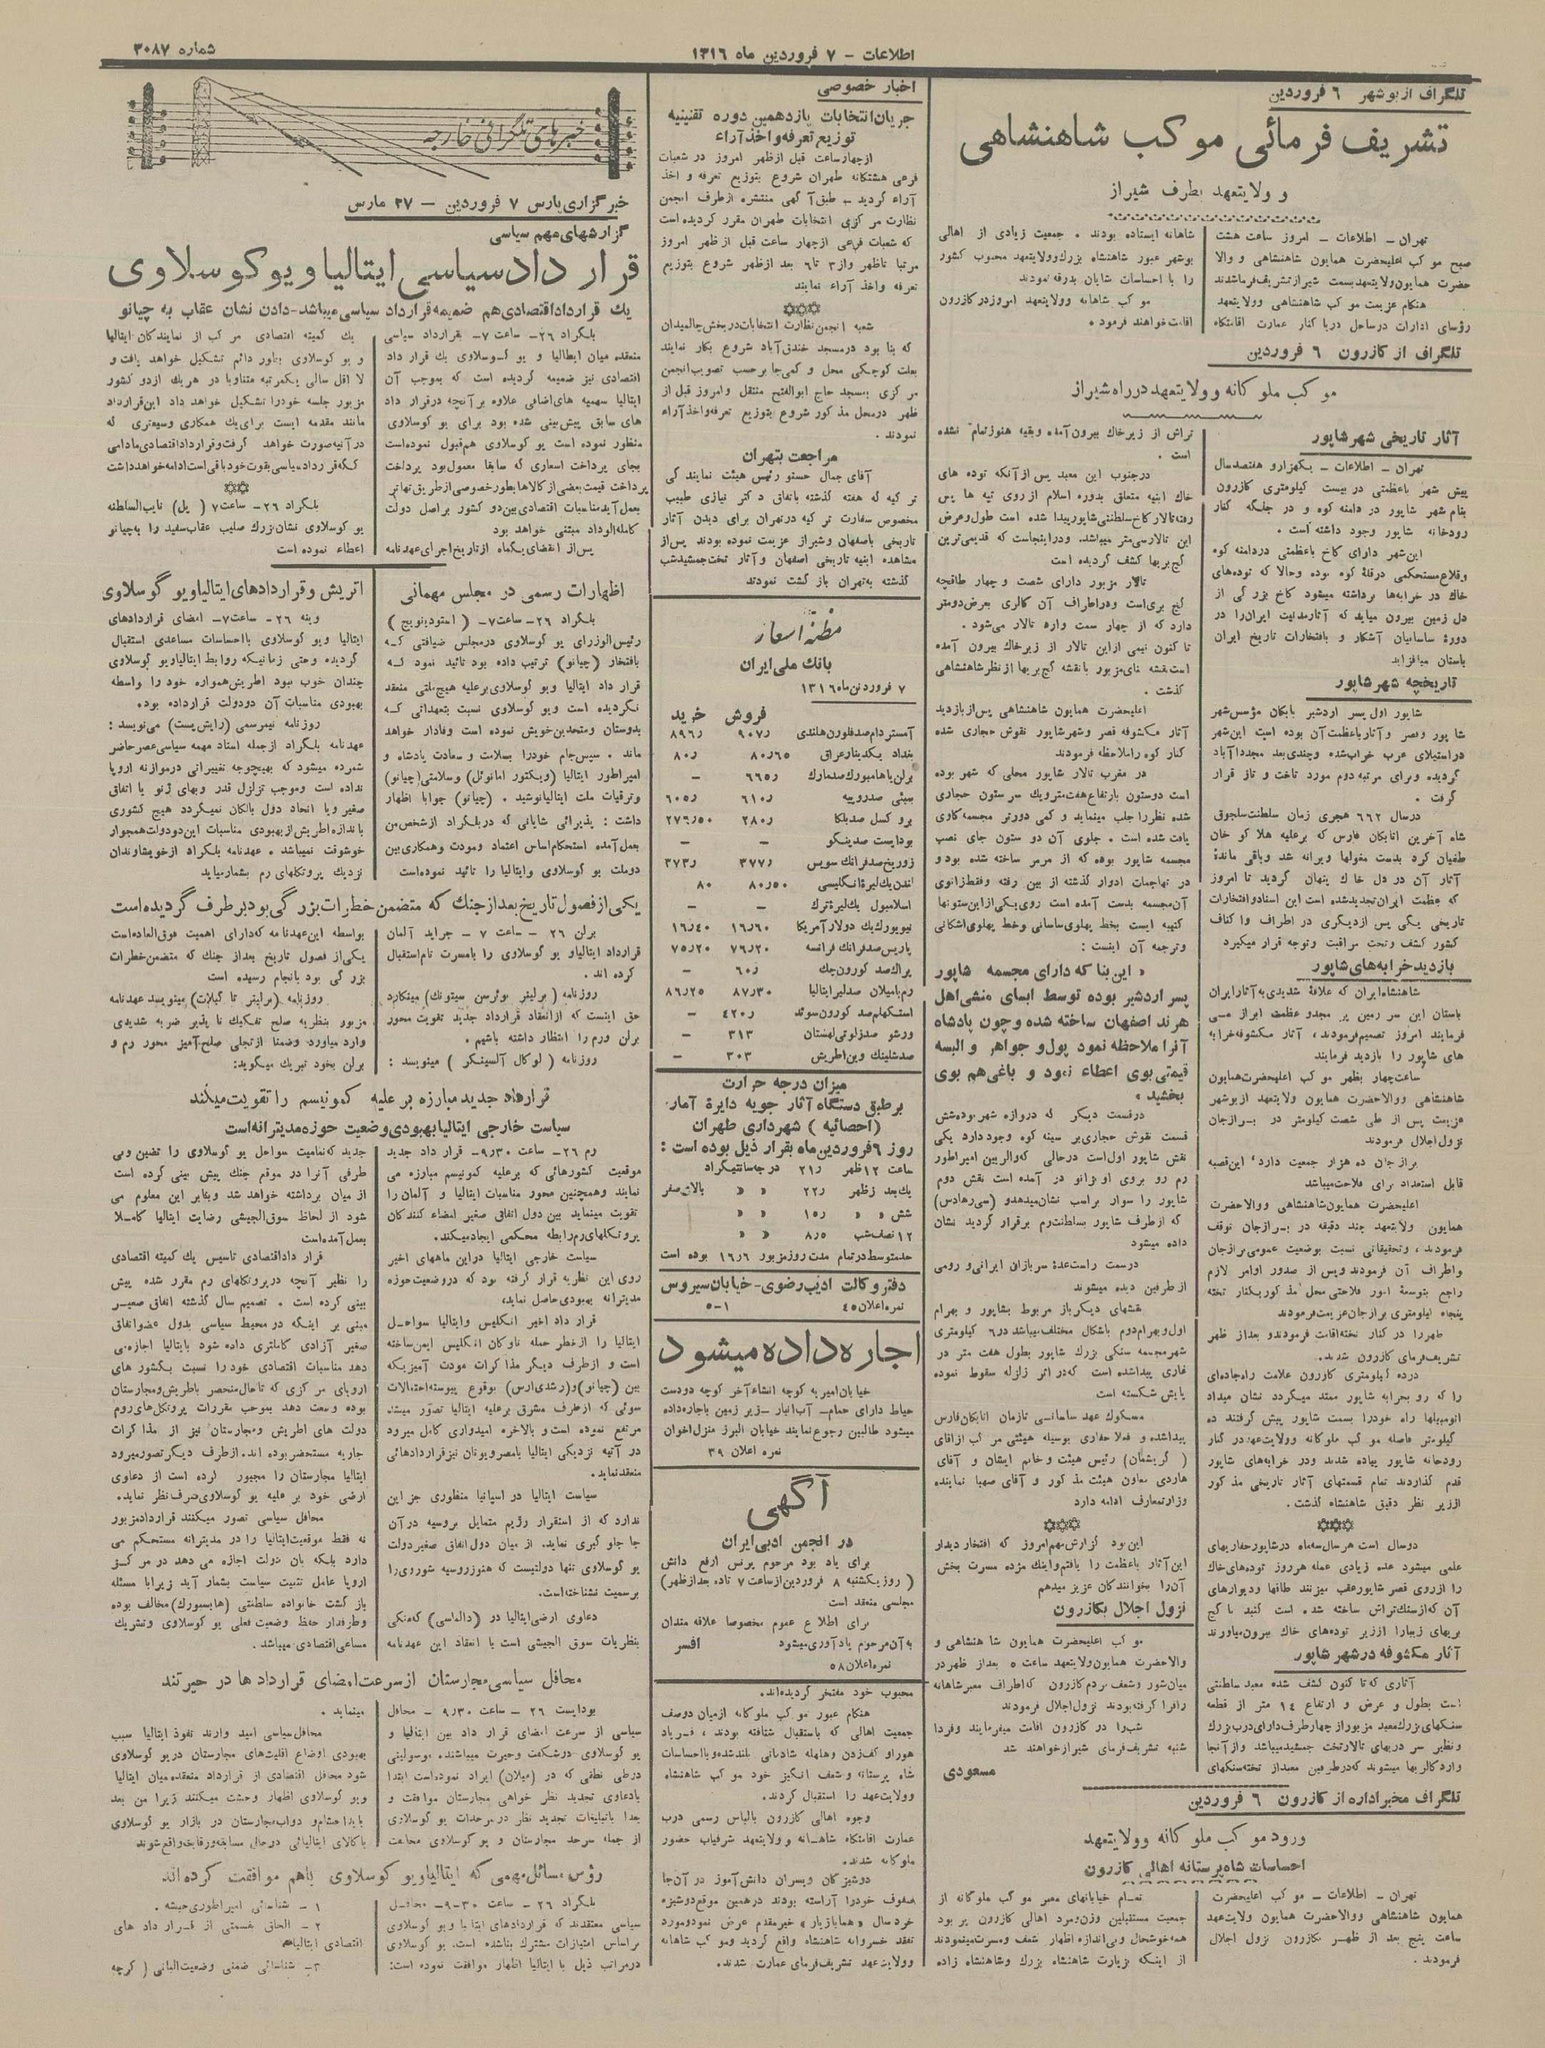 اطلاعات - ۷ فروردین ماه ۱۳۱۶
شماره ۳۰۸۷
تلگراف از بوشهر ۶ فروردین
تشریف فرمائی موکب شاهنشاهی
و ولایتعهد بطرف شیراز
تهران - اطلاعات - امروز ساعت هشت
صبح موکب اعلیحضرت همایون شاهنشاهی و والا
حضرت همایون ولایتعهد بسمت شیراز تشریف فرما شدند
هنگام عزیمت موکب شاهنشاهی وولایتعهد
رؤسای ادارات درساحل دریا کنار عمارت اقامتگاه
شاهانه ایستاده بودند . جمعیت زیادی از اهالی
بوشهر عبور شاهنشاه بزرگ وولایتعهد محبوب کشور
را با احساسات شایان بدرقه نمودند
موکب شاهانه وولایتعهد امروز در کازرون
اقامت خواهند فرمود .
تلگراف از کازرون ۶ فروردین
موکب ملوکانه وولایتعهد در راه شیراز
آثار تاریخی شهر شاپور
تهران - اطلاعات - یکهزار و هفتصد سال
پیش شهر باعظمتی در بیست کیلومتری کازرون
بنام شهر شاپور در دامنه کوه و در جلگه کنار
رودخانه شاپور وجود داشته است .
این شهر دارای کاخ باعظمتی دردامنه کوه
وقلاع مستحکمی در قلۀ کوه بوده وحالا که توده‌های
خاک در خرابه‌ها برداشته میشود کاخ بزرگی از
دل زمین بیرون میاید که آثار مدنیت ایران را در
دورۀ ساسانیان آشکار و بافتخارات تاریخ ایران
باستان میافزاید
تاریخچه شهر شاپور
شاپور اول پسر اردشیر بابکان مؤسس شهر
شاپور وقصر و آثار باعظمت آن بوده است این شهر
دراستیلای عرب خراب شده وچندی بعد مجددا آباد
گردیده وبرای مرتبه دوم مورد تاخت و تاز قرار
گرفت .
درسال ۶۶۲ هجری زمان سلطنت سلجوق
شاه آخرین اتابکان فارس که برعلیه هلاکو خان
طغیان کرد بدست مغولها ویرانه شد وباقی ماندۀ
آثار آن در دل خاک پنهان گردید تا امروز
که عظمت ایران تجدید شده است این اسناد و افتخارات
تاریخی یکی پس ازدیگری در اطراف واکناف
کشور کشف وتحت مراقبت وتوجه قرار میگیرد
بازدید خرابه های شاپور
شاهنشاه ایران که علاقۀ شدیدی به آثار ایران
باستان این سر زمین پر مجد و عظمت ابراز می
فرمایند امروز تصمیم فرمودند ، آثار مکشوفه خرابه
های شاپور را بازدید فرمایند
ساعت چهار بظهر موکب اعلیحضرت همایون
شاهنشاهی ووالاحضرت همایون ولایتعهد ازبوشهر
عزیمت پس از طی شصت کیلومتر در برازجان
نزول اجلال فرمودند
برازجان ده هزار جمعیت دارد ، این قصبه
قابل استعداد برای فلاحت میباشد
اعلیحضرت همایون شاهنشاهی ووالاحضرت
همایون ولایتعهد چند دقیقه در برازجان توقف
فرمودند ، وتحقیقاتی نسبت بوضعیت عمومی برازجان
واطراف آن فرمودند وپس از صدور اوامر لازم
راجع بتوسعۀ امور فلاحتی محل مذکور بکنار تخته
پنجاه کیلومتری برازجان عزیمت فرمودند
ظهر را در کنار تخته اقامت فرمودند وبعد از ظهر
تشریف فرمای کازرون شدند.
درده کیلومتری کازرون علامت راه جاده‌ای
را که رو بخرابه شاپور ممتد میگردد نشان میداد
اتومبیلها راه خودرا بسمت شاپور پیش گرفتند ده
کیلومتر فاصله موکب ملوکانه وولایتعهد در کنار
رودخانه شاپور پیاده شدند ودر خرابه‌های شاپور
قدم گذاردند تمام قسمتهای آثار تاریخی مذکور
اززیر نظر دقیق شاهنشاه گذشت .
دوسال است هرسال سه ماه درشاپور حفاریهای
علمی میشود عده زیادی عمله هرروز توده‌های خاک
را ازروی قصر شاپور عقب میزنند طاقها ودیوارهای
آن که ازسنگ تراش ساخته شده است گنبد با گچ
بریهای زیبارا اززیر توده‌های خاک بیرون میاورند
آثار مکشوفه در شهر شاپور
آثاری که تا کنون کشف شده معبد سلطنتی
است بطول و عرض و ارتفاع ۱۴ متر از قطعه
سنگهای بزرگ معبد مزبور از چهارطرف دارای درب بزرگ
ونظیر سر دربهای تالار تخت جمشید میباشد واز آنجا
وارد کالریها میشوند که درطرفین معبد از تخته سنگهای
تراش از زیر خاک بیرون آمده وبقیه هنوز تمام نشده
است .
درجنوب این معبد پس از آنکه توده های
خاک ابنیه متعلق بدوره اسلام از روی تپه ها پس
رفته تالار کاخ سلطنتی شاپور پیدا شده است طول وعرض
این تالار سی متر میباشد. ودراینجاست که قدیمی ترین
گچ بریها کشف گردیده است
تالار مزبور دارای شصت و چهار طاقچه
گچ بری است ودراطراف آن کالری بعرض دومتر
دارد که از چهار سمت وارد تالار می‌شود.
تا کنون نیمی ازاین تالار از زیر خاک بیرون آمده
است نقشه های مزبور با نقشه گچ بریها از نظر شاهنشاهی
گذشت .
اعلیحضرت همایون شاهنشاهی پس از بازدید
آثار مکشوفه قصر وشهر شاپور نقوش حجاری شده
کنار کوه را ملاحظه فرمودند
در مغرب تالار شاپور محلی که شهر بوده
است دوستون بارتفاع هفت متر ویک سر ستون حجاری
شده نظر را جلب مینماید و کمی دورتر مجسمه کاوی
یافت شده است . جلوی آن دو ستون جای نصب
مجسمه شاپور بوده که از مرمر ساخته شده بود و
در تهاجمات ادوار گذشته از بین رفته وفقط زانوی
آن مجسمه بدست آمده است روی یکی از این ستونها
کتیبه ایست بخط پهلوی ساسانی و خط پهلوی اشکانی
وترجمه آن اینست :
« این بنا که دارای مجسمه شاپور
پسر اردشیر بوده توسط ابسای منشی اهل
هرند اصفهان ساخته شده وچون پادشاه
آنرا ملاحظه نمود پول و جواهر و البسه
قیمتی بوی اعطاء نمود و باغی هم بوی
بخشید »
درقسمت دیگر که دروازه شهر بوده شش
قسمت نقوش حجاری بر سینه کوه وجود دارد یکی
نقش شاپور اول است درحالی که والرین امپراطور
رم رو بروی او بزانو در آمده است نقش دوم
شاپور را سوار براسب نشان میدهد و (سی رهادس)
که از طرف شاپور بسلطنت رم برقرار گردید نشان
داده میشود
درسمت راست عدۀ سربازان ایرانی و رومی
از طرفین دیده میشوند
نقشهای دیگر باز مربوط بشاپور و بهرام
اول وبهرام دوم باشکال مختلف میباشد در ۶ کیلومتری
شهر مجسمه سنگی بزرگ شاپور بطول هفت متر در
غاری پیدا شده است که در اثر زلزله سقوط نموده
پایش شکسته است
مسکوک عهد ساسانی تا زمان اتابکان فارس
پیدا شده و فعلا حفاری بوسیله هیئتی مرکب از آقای
( گریشمان) رئیس هیئت و خانم ایشان و آقای
هاردی معاون هیئت مذکور و آقای صهبا نماینده
وزارت معارف ادامه دارد
این بود گزارش مهم امروز که افتخار دیدار
این آثار باعظمت را یافتم واینک مژده مسرت بخش
آن را بخوانندگان عزیز میدهم
نزول اجلال بکازرون
موکب اعلیحضرت همایون شاهنشاهی و
والاحضرت همایون ولایتعهد ساعت ۵ بعد از ظهر در
میان شور وشعف مردم کازرون که اطراف معبر شاهانه
را فرا گرفته بودند نزول اجلال فرمودند
شب را در کازرون اقامت میفرمایند وفردا
شنبه تشریف فرمای شیراز خواهند شد
مسعودی
تلگراف مخبر اداره از کازرون ۶ فروردین
ورود موکب ملوکانه وولایتعهد
احساسات شاه پرستانه اهالی کازرون
تهران - اطلاعات - موکب اعلیحضرت
همایون شاهنشاهی ووالاحضرت همایون ولایتعهد
ساعت پنج بعد از ظهر بکازرون نزول اجلال
فرمودند .
تمام خیابانهای معبر موکب ملوکانه از
جمعیت مستقبلین وزن ومرد اهالی کازرون پر بود
همه خوشحال وبی اندازه اظهار شعف ومسرت مینمودند
از اینکه بزیارت شاهنشاه بزرگ وشاهنشاه زاده
اخبار خصوصی
جریان انتخابات یازدهمین دوره تقنینیه
توزیع تعرفه و اخذ آراء
از چهار ساعت قبل از ظهر امروز در شعبات
فرعی هشتگانه طهران شروع بتوزیع تعرفه و اخذ
آراء گردید - طبق آگهی منتشره از طرف انجمن
نظارت مرکزی انتخابات طهران مقرر گردیده است
که شعبات فرعی از چهار ساعت قبل از ظهر امروز
مرتبا تا ظهر واز ۳ تا ۶ بعد از ظهر شروع بتوزیع
تعرفه واخذ آراء نمایند
شعبه انجمن نظارت انتخابات در بخش چالمیدان
که بنا بود در مسجد خندق آباد شروع بکار نمایند
بعلت کوچکی محل و کمی جا برحسب تصویب انجمن
مرکزی بمسجد حاج ابوالفتح منتقل و امروز قبل از
ظهر درمحل مذکور شروع بتوزیع تعرفه و اخذ آراء
نمودند .
مراجعت بتهران
آقای جمال حسنو رئیس هیئت نمایندگی
ترکیه که هفته گذشته باتفاق دکتر نیازی طبیب
مخصوص سفارت ترکیه در تهران برای دیدن آثار
تاریخی باصفهان وشیراز عزیمت نموده بودند پس از
مشاهده ابنیه تاریخی اصفهان و آثار تخت جمشید شب
گذشته به تهران باز گشت نمودند
مظنه اسعار
بانک ملی ایران
۷ فروردین ماه ۱۳۱۶
فروش خرید
آمستردام صد فلورن هلندی ۹۰۷٫ ۸۹۶٫
بغداد یکدینار عراق ۸۰٫۶۵ ۸۰٫
برلن یا هامبورک صد مارک ۶۶۵٫ -
بمبئی صد روپیه ۶۱۰٫ ۶۰۵٫
بروکسل صد بلکا ۲۸۰٫ ۲۷۶٫۵۰
بوداپست صد پنگو - -
زوریخ صد فرانک سویس ۳۷۷٫ ۳۷۳٫
لندن یک لیرۀ انگلیسی ۸۰٫۵۰ ۸۰
اسلامبول یک لیرۀ ترک - -
نیویورک یک دولار آمریکا ۱۶٫۶۰ ۱۶٫۴۰
پاریس صد فرانک فرانسه ۷۶٫۲۰ ۷۵٫۲۰
پراک صد کورون چک ۶۰٫ -
رم یا میلان صد لیر ایتالیا ۸۷٫۳۰ ۸۶٫۲۵
استکهلم صد کورون سوئد ۴۲۰٫ -
ورشو صد زلوتی لهستان ۳۱۳ -
صد شلینک وین اطریش ۳۰۳ -
میزان درجه حرارت
بر طبق دستگاه آثار جویه دایرۀ آمار
(احصائیه ) شهرداری طهران
روز ۶ فروردین ماه بقرار ذیل بوده است :
ساعت ۱۲ ظهر ۲۱٫ درجه سانتیگراد
یک بعد از ظهر ۲۲٫ « « بالای صفر
شش « « ۱۵٫ « «
۱۲ نصف شب ۸٫۵ « «
حد متوسط در تمام مدت روز مزبور ۱۶٫۶ بوده است
دفتر وکالت ادیب رضوی - خیابان سیروس
نمره اعلان ۴۵ ۱-۵
اجاره داده میشود
خیابان امیریه کوچه انشاء آخر کوچه دو دست
حیاط دارای حمام - آب انبار - زیر زمین باجاره داده
میشود طالبین رجوع نمایند خیابان البرز منزل اخوان
نمره اعلان ۳۹
آگهی
در انجمن ادبی ایران
برای یاد بود مرحوم پرنس ارفع دانش
( روز یکشنبه ۸ فروردین از ساعت ۷ تا ده بعد از ظهر)
مجلسی منعقد است
برای اطلاع عموم مخصوصا علاقه مندان
به آن مرحوم یادآوری میشود افسر
نمره اعلان ۵۸
محبوب خود مفتخر گردیده‌اند.
هنگام عبور موکب ملوکانه ازمیان دوصف
جمعیت اهالی که باستقبال شتافته بودند ، فریاد
هورا و کف زدن وهلهله شادمانی بلند شده وبااحساسات
شاه پرستانه وشعف انگیز خود موکب شاهنشاه
وولایتعهد را استقبال کردند.
وجوه اهالی کازرون بالباس رسمی درب
عمارت اقامتگاه شاهانه وولایتعهد شرفیاب حضور
ملوکانه شدند.
دوشیزگان وپسران دانش آموز در آن جا
صفوف خودرا آراسته بودند درهمین موقع دوشیزه
خردسال «هما بازیار» خیر مقدم عرض نمود و مورد
تفقد خسروانه شاهنشاه واقع گردید وموکب شاهانه
وولایتعهد تشریف فرمای عمارت شدند.
خبرهای تلگرافی خارجه
خبرگزاری پارس ۷ فروردین - ۲۷ مارس
گزارشهای مهم سیاسی
قرارداد سیاسی ایتالیا و یوگوسلاوی
یک قرارداد اقتصادی هم ضمیمه قرارداد سیاسی میباشد - دادن نشان عقاب به چیانو
بلگراد ۲۶ - ساعت ۷ - بقرارداد سیاسی
منعقده میان ایطالیا و یوگوسلاوی یک قرار داد
اقتصادی نیز ضمیمه گردیده است که بموجب آن
ایتالیا سهمیه های اضافی علاوه بر آنچه درقرار داد
های سابق پیش بینی شده بود برای یوگوسلاوی
منظور نموده است یوگوسلاوی هم قبول نموده است
بجای پرداخت اسعاری که سابقا معمول بود پرداخت
پرداخت قیمت بعضی از کالاها بطور خصوصی از طریق تهاتر
بعمل آید مناسبات اقتصادی بین دو کشور براصل دولت
کاملة الوداد مبتنی خواهد بود
پس از انقضای یکماه از تاریخ اجرای عهدنامه
یک کمیته اقتصادی مرکب از نمایندکان ایتالیا
و یوگوسلاوی بطور دائم تشکیل خواهد یافت و
لا اقل سالی یکمرتبه متناوبا در هریک از دو کشور
مزبور جلسه خودرا تشکیل خواهد داد این قرارداد
مانند مقدمه ایست برای یک همکاری وسیعتری که
در آتیه صورت خواهد گرفت و قرارداد اقتصادی مادامی
که قرارداد سیاسی بقوت خود باقی است ادامه خواهد داشت
بلگراد ۲۶ - ساعت ۷ ( پل) نایب السلطنه
یوگوسلاوی نشان بزرگ صلیب عقاب سفید را به چیانو
اعطاء نموده است
اظهارات رسمی در مجلس مهمانی
بلگراد ۲۶ - ساعت ۷ - ( استویدنویچ )
رئیس الوزرای یوگوسلاوی درمجلس ضیافتی که
بافتخار (چیانو) ترتیب داده بود تائید نمود که
قرار داد ایتالیا ویوگوسلاوی برعلیه هیچ ملتی منعقد
نگردیده است ویوگوسلاوی نسبت بتعهداتی که
بدوستان ومتحدین خویش نموده است وفادار خواهد
ماند . سپس جام خودرا بسلامت و سعادت پادشاه و
امپراطور ایتالیا (ویکتور امانوئل) وسلامتی (چیانو)
وترقیات ملت ایتالیا نوشید . (چیانو) جوابا اظهار
داشت : پذیرائی شایانی که در بلگراد از شخص من
بعمل آمده استحکام اساس اعتماد ومودت وهمکاری بین
دوملت یوگوسلاوی وایتالیا را تائید نموده است
اتریش و قراردادهای ایتالیا و یوگوسلاوی
وینه ۲۶ - ساعت ۷ - امضای قراردادهای
ایتالیا ویوگوسلاوی بااحساسات مساعدی استقبال
گردیده وحتی زمانیکه روابط ایتالیا ویوگوسلاوی
چندان خوب نبود اطریش همواره خود را واسطه
بهبودی مناسبات آن دودولت قرارداده بود.
روزنامه نیمرسمی (رایش پست) می‌نویسد :
عهدنامه بلگراد ازجمله اسناد مهمه سیاسی عصر حاضر
شمرده میشود که بهیچوجه تغییراتی درموازنه اروپا
نداده است وموجب تزلزل قدر وبهای ژنو یا اتفاق
صغیر ویا اتحاد دول بالکان نمیگردد هیچ کشوری
باندازه اطریش از بهبودی مناسبات این دودولت همجوار
خوشوقت نمیباشد . عهدنامه بلگراد از خویشاوندان
نزدیک پروتکلهای رم بشمار میاید
یکی از فصول تاریخ بعد از جنک که متضمن خطرات بزرگی بود بر طرف گردیده است
برلن ۲۶ - ساعت ۷ - جراید آلمان
قرارداد ایتالیا و یوگوسلاوی را بامسرت تام استقبال
کرده اند .
روزنامه (برلینر بوئرسن سیتونک) مینکارد
حق اینست که از انعقاد قرارداد جدید تقویت محور
برلن ورم را انتظار داشته باشیم .
روزنامه ( لوکال آلسینگر ) مینویسد :
بواسطه این عهدنامه که دارای اهمیت فوق العاده است
یکی از فصول تاریخ بعد از جنک که متضمن خطرات
بزرگی بود بانجام رسیده است
روزنامه (برلینر تا گبلات) مینویسد عهدنامه
مزبور بنظریه صلح تفکیک نا پذیر ضربه شدیدی
وارد میاورد وضمنا ازتجلی صلح آمیز محور رم و
برلن بخود تبریک میگوید:
قرارداد جدید مبارزه بر علیه کمونیسم را تقویت میکند
سیاست خارجی ایتالیا بهبودی وضعیت حوزه مدیترانه است
رم ۲۶ - ساعت ۹٫۳۰ - قرار داد جدید
موقعیت کشورهائی که برعلیه کمونیسم مبارزه می
نمایند وهمچنین محور مناسبات ایتالیا و آلمان را
تقویت مینماید بین دول اتفاق صغیر امضاء کنندگان
پروتکلهای رم رابطه محکمی ایجاد میکند.
سیاست خارجی ایتالیا دراین ماههای اخیر
روی این نظریه قرار گرفته بود که دروضعیت حوزه
مدیترانه بهبودی حاصل نماید،
قرار داد اخیر انگلیس وایتالیا سواحل
ایتالیا را ازخطر حمله ناوکان انگلیس ایمن ساخته
است و از طرف دیگر مذاکرات مودت آمیزیکه
بین (چیانو) و (رشدی ارس) بوقوع پیوسته احتمالات
سوئی که ازطرف مشرق برعلیه ایتالیا تصور میشد
مرتفع نموده است و بالاخره امیدواری کامل میرود
در آتیه نزدیکی ایتالیا بامصر ویونان نیز قراردادهائی
منعقد نماید.
سیاست ایتالیا در اسپانیا منظوری جز این
ندارد که از استقرار رژیم متمایل بروسیه در آن
جا جلوگیری نماید. از میان دول اتفاق صغیر دولت
یوگوسلاوی تنها دولتیست که هنوز روسیه شوروی را
برسمیت نشناخته است.
دعاوی ارضی ایتالیا در (دالماسی) که متکی
بنظریات سوق الجیشی است با انعقاد این عهدنامه
جدید که تمامیت سواحل یوگوسلاوی را تضمین وبی
طرفی آنرا در موقع جنک پیش بینی کرده است
از میان برداشته خواهد شد وبنابر این معلوم می
شود از لحاظ سوق الجیشی رضایت ایتالیا کاملا
بعمل آمده است
قرار داد اقتصادی تاسیس یک کمیته اقتصادی
را نظیر آنچه در پروتکلهای رم مقرر شده پیش
بینی کرده است . تصمیم سال گذشته اتفاق صغیر
مبنی بر اینکه درمحیط سیاسی بدول عضو اتفاق
صغیر آزادی کاملتری داده شود بایتالیا اجازه می
دهد مناسبات اقتصادی خود را نسبت بکشور های
اروپای مرکزی که تا حال منحصر باطریش ومجارستان
بوده وسعت دهد بموجب مقررات پروتکل های روم
دولت های اطریش ومجارستان نیز از مذاکرات
جاریه مستحضر بوده اند. ازطرف دیگر تصور میرود
ایتالیا مجارستان را مجبور کرده است از دعاوی
ارضی خود برعلیه یوگوسلاوی صرف نظر نماید.
محافل سیاسی تصور میکنند قرارداد مزبور
نه فقط موقعیت ایتالیا را در مدیترانه مستحکم می
دارد بلکه بان دولت اجازه می دهد در مرکز
اروپا عامل تثبیت سیاست بشمار آید زیرا با مسئله
باز گشت خانواده سلطنتی (هابسبورک) مخالف بوده
وطرفدار حفظ وضعیت فعلی یوگوسلاوی وتشریک
مساعی اقتصادی میباشد.
محافل سیاسی مجارستان از سرعت امضای قرارداد ها در حیرتند
بوداپست ۲۶ - ساعت ۹٫۳۰ - محافل
سیاسی از سرعت امضای قرار داد بین ایتالیا و
یوگوسلاوی درشگفت وحیرت میباشند. موسولینی
درطی نطقی که در (میلان) ایراد نموده است ابتدا
بادعاوی تجدید نظر خواهی مجارستان موافقت و
بعدا باتبلیغات تجدید نظر در سرحدات یوگوسلاوی
از جمله سرحد مجارستان و یوگوسلاوی مخالفت
مینماید .
محافل سیاسی امید وارند نفوذ ایتالیا سبب
بهبودی اوضاع اقلیت‌های مجارستان در یوگوسلاوی
شود محافل اقتصادی از قرارداد منعقده میان ایتالیا
ویوگوسلاوی اظهار وحشت میکنند زیرا من بعد
باید احشام و دواب مجارستان در بازار یوگوسلاوی
باکالای ایتالیائی در حال مسابقه ورقابت واقع شوند
رؤس مسائل مهمی که ایتالیا و یوگوسلاوی باهم موافقت کرده اند
بلگراد ۲۶ - ساعت ۳۰-۹ - محافل
سیاسی معتقدند که قراردادهای ایتالیا با یوگوسلاوی
براساس امتیازات مشترک بناشده است. یوگوسلاوی
درمراتب ذیل با ایتالیا اظهار موافقت نموده است:
۱ - شناسائی امپراطوری حبشه .
۲ - الحاق بقسمتی از قرار داد های
اقتصادی ایتالیا.
۳ - شناسائی ضمنی وضعیت آلبانی ( گرچه